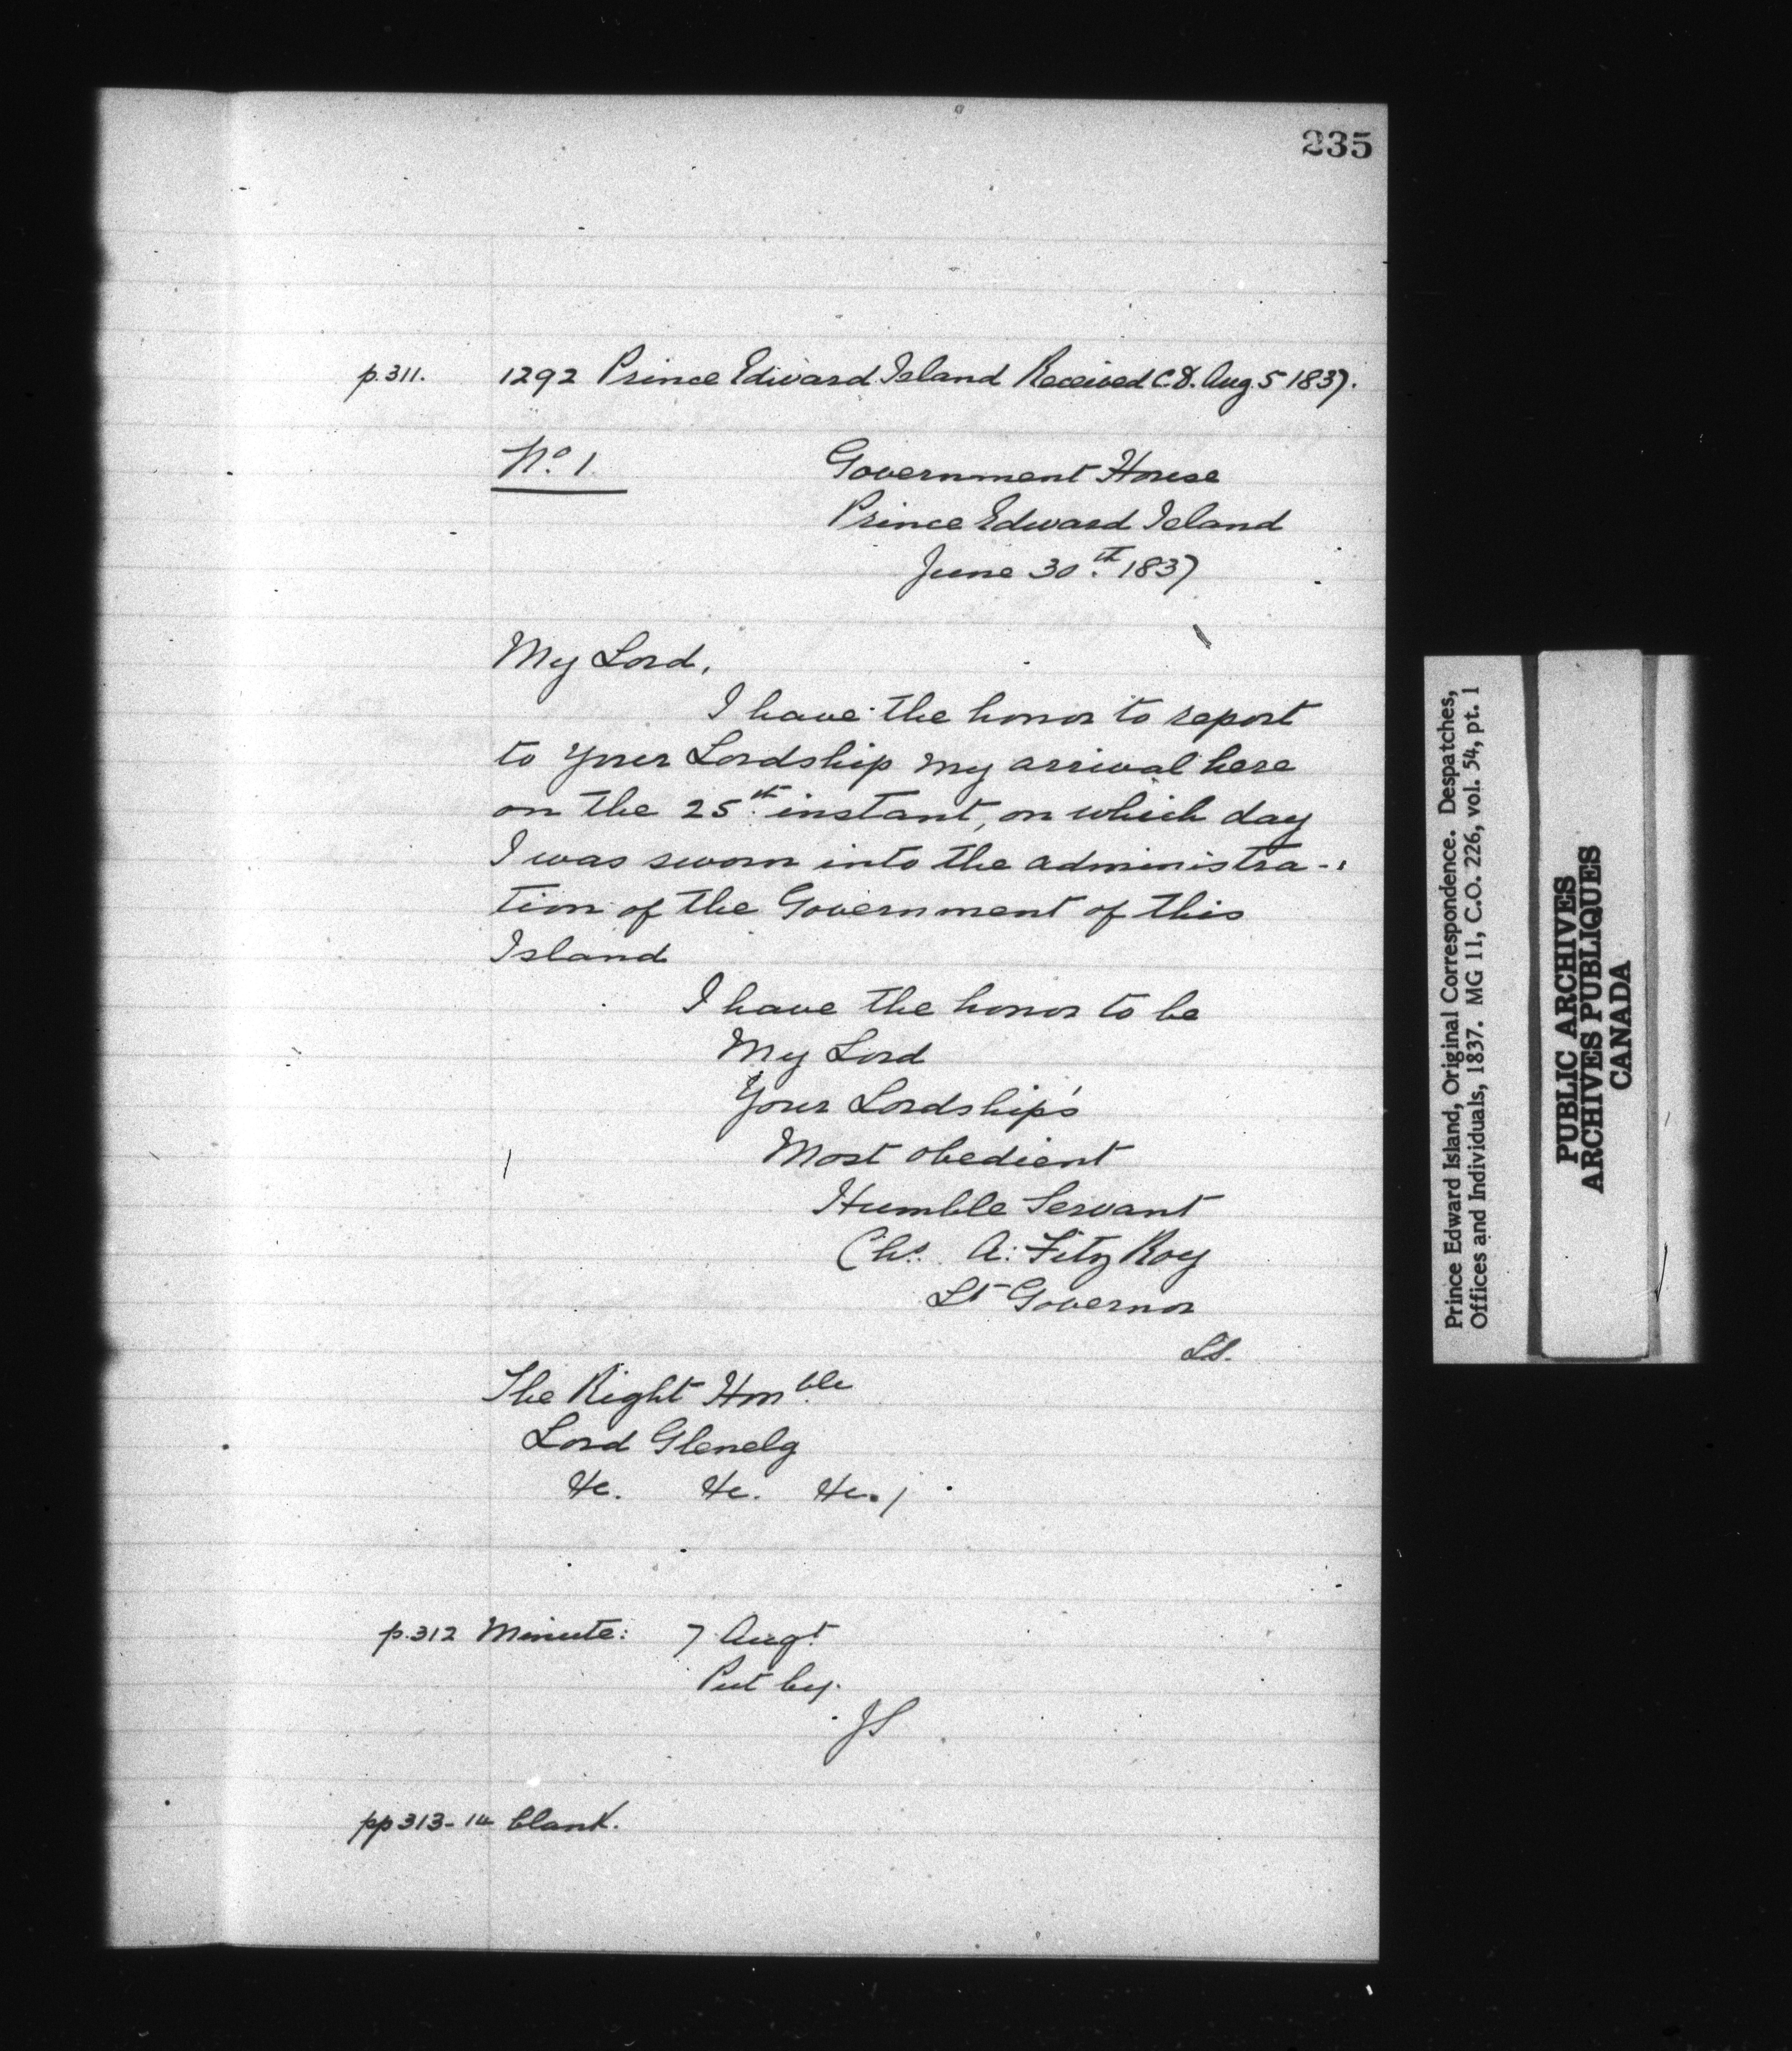 235
p.311. 1292 Prince Edward Island Received C.D. Aug. 5 1837.
No. 1.
Government House
Prince Edward Island
June 30th. 1837
My Lord,
I have the honor to report
to your Lordship my arrival here
on the 25th. instant, on which day
I was sworn into the administra-
tion of the Government of this
Island
I have the honor to be
My Lord
Your Lordship's
Most obedient
Humble Servant
Chs. A: FitzRoy
Lt Governor
L.S.
The Right Honble
Lord Glenelg
&c. &c. &c.
p.312 Minute: 7 Augt.
Put by.
JS
pp 313-14 blank.
Prince Edward Island, Original Correspondence. Despatches,
Offices and Individuals, 1837. MG 11, C.O. 226, vol. 54, pt. 1
PUBLIC ARCHIVES
ARCHIVES PUBLIQUES
CANADA